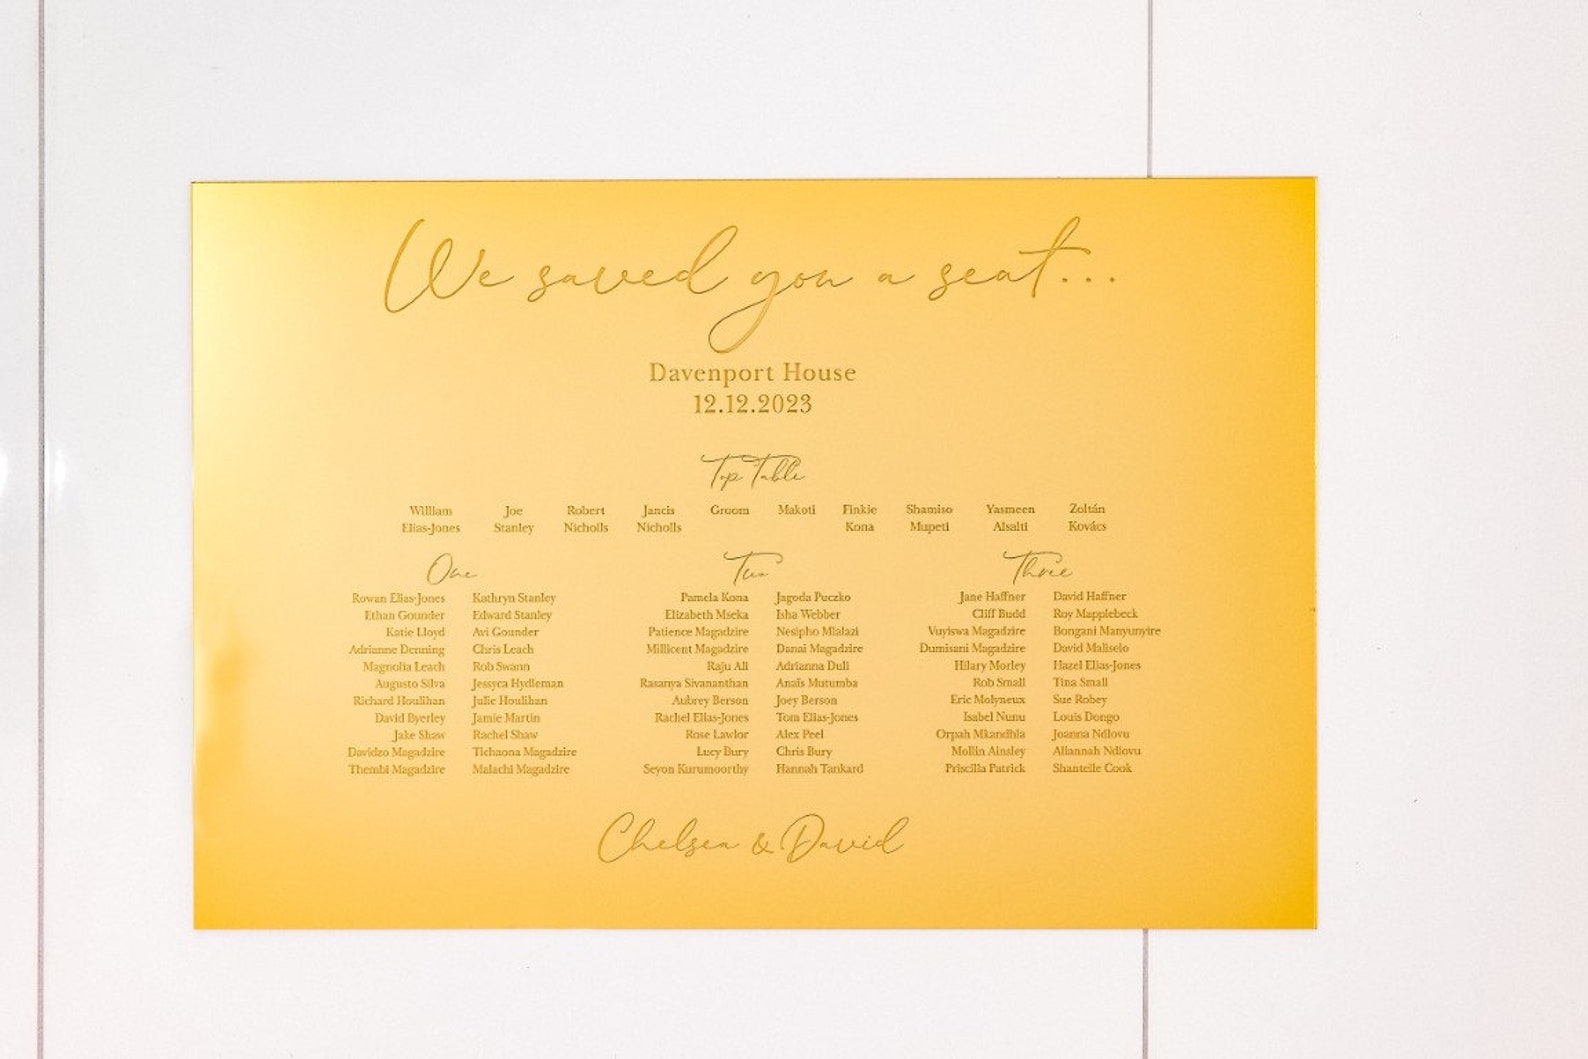 We saved you a seat...
Davenport House
12.12.2023
Top Table
William Joe Robert Jancis Groom Makoti Finkie Shamiso Yasmeen Zoltán
Elias-Jones Stanley Nicholls Nicholls Kona Mupeti Alsalti Kovács
One Two Three
Rowan Elias-Jones Kathryn Stanley Pamela Kona Jagoda Puczko Jane Haffner David Haffner
Ethan Gounder Edward Stanley Elizabeth Mseka Isha Webber Cliff Budd Roy Mapplebeck
Katie Lloyd Avi Gounder Patience Magadzire Nesipho Mlalazi Vuyiswa Magadzire Bongani Manyunyire
Adrianne Denning Chris Leach Millicent Magadzire Danai Magadzire Dumisani Magadzire David Maliselo
Magnolia Leach Rob Swann Raju Ali Adrianna Duli Hilary Morley Hazel Elias-Jones
Augusto Silva Jessyca Hydleman Rasanya Sivananthan Anaïs Mutumba Rob Small Tina Small
Richard Houlihan Julie Houlihan Aubrey Berson Joey Berson Eric Molyneux Sue Robey
David Byerley Jamie Martin Rachel Elias-Jones Tom Elias-Jones Isabel Nunu Louis Dongo
Jake Shaw Rachel Shaw Rose Lawlor Alex Peel Orpah Mkandhla Joanna Ndlovu
Davidzo Magadzire Tichaona Magadzire Lucy Bury Chris Bury Mollin Ainsley Aliannah Ndlovu
Thembi Magadzire Malachi Magadzire Seyon Kurumoorthy Hannah Tankard Priscilla Patrick Shantelle Cook
Chelsea & David